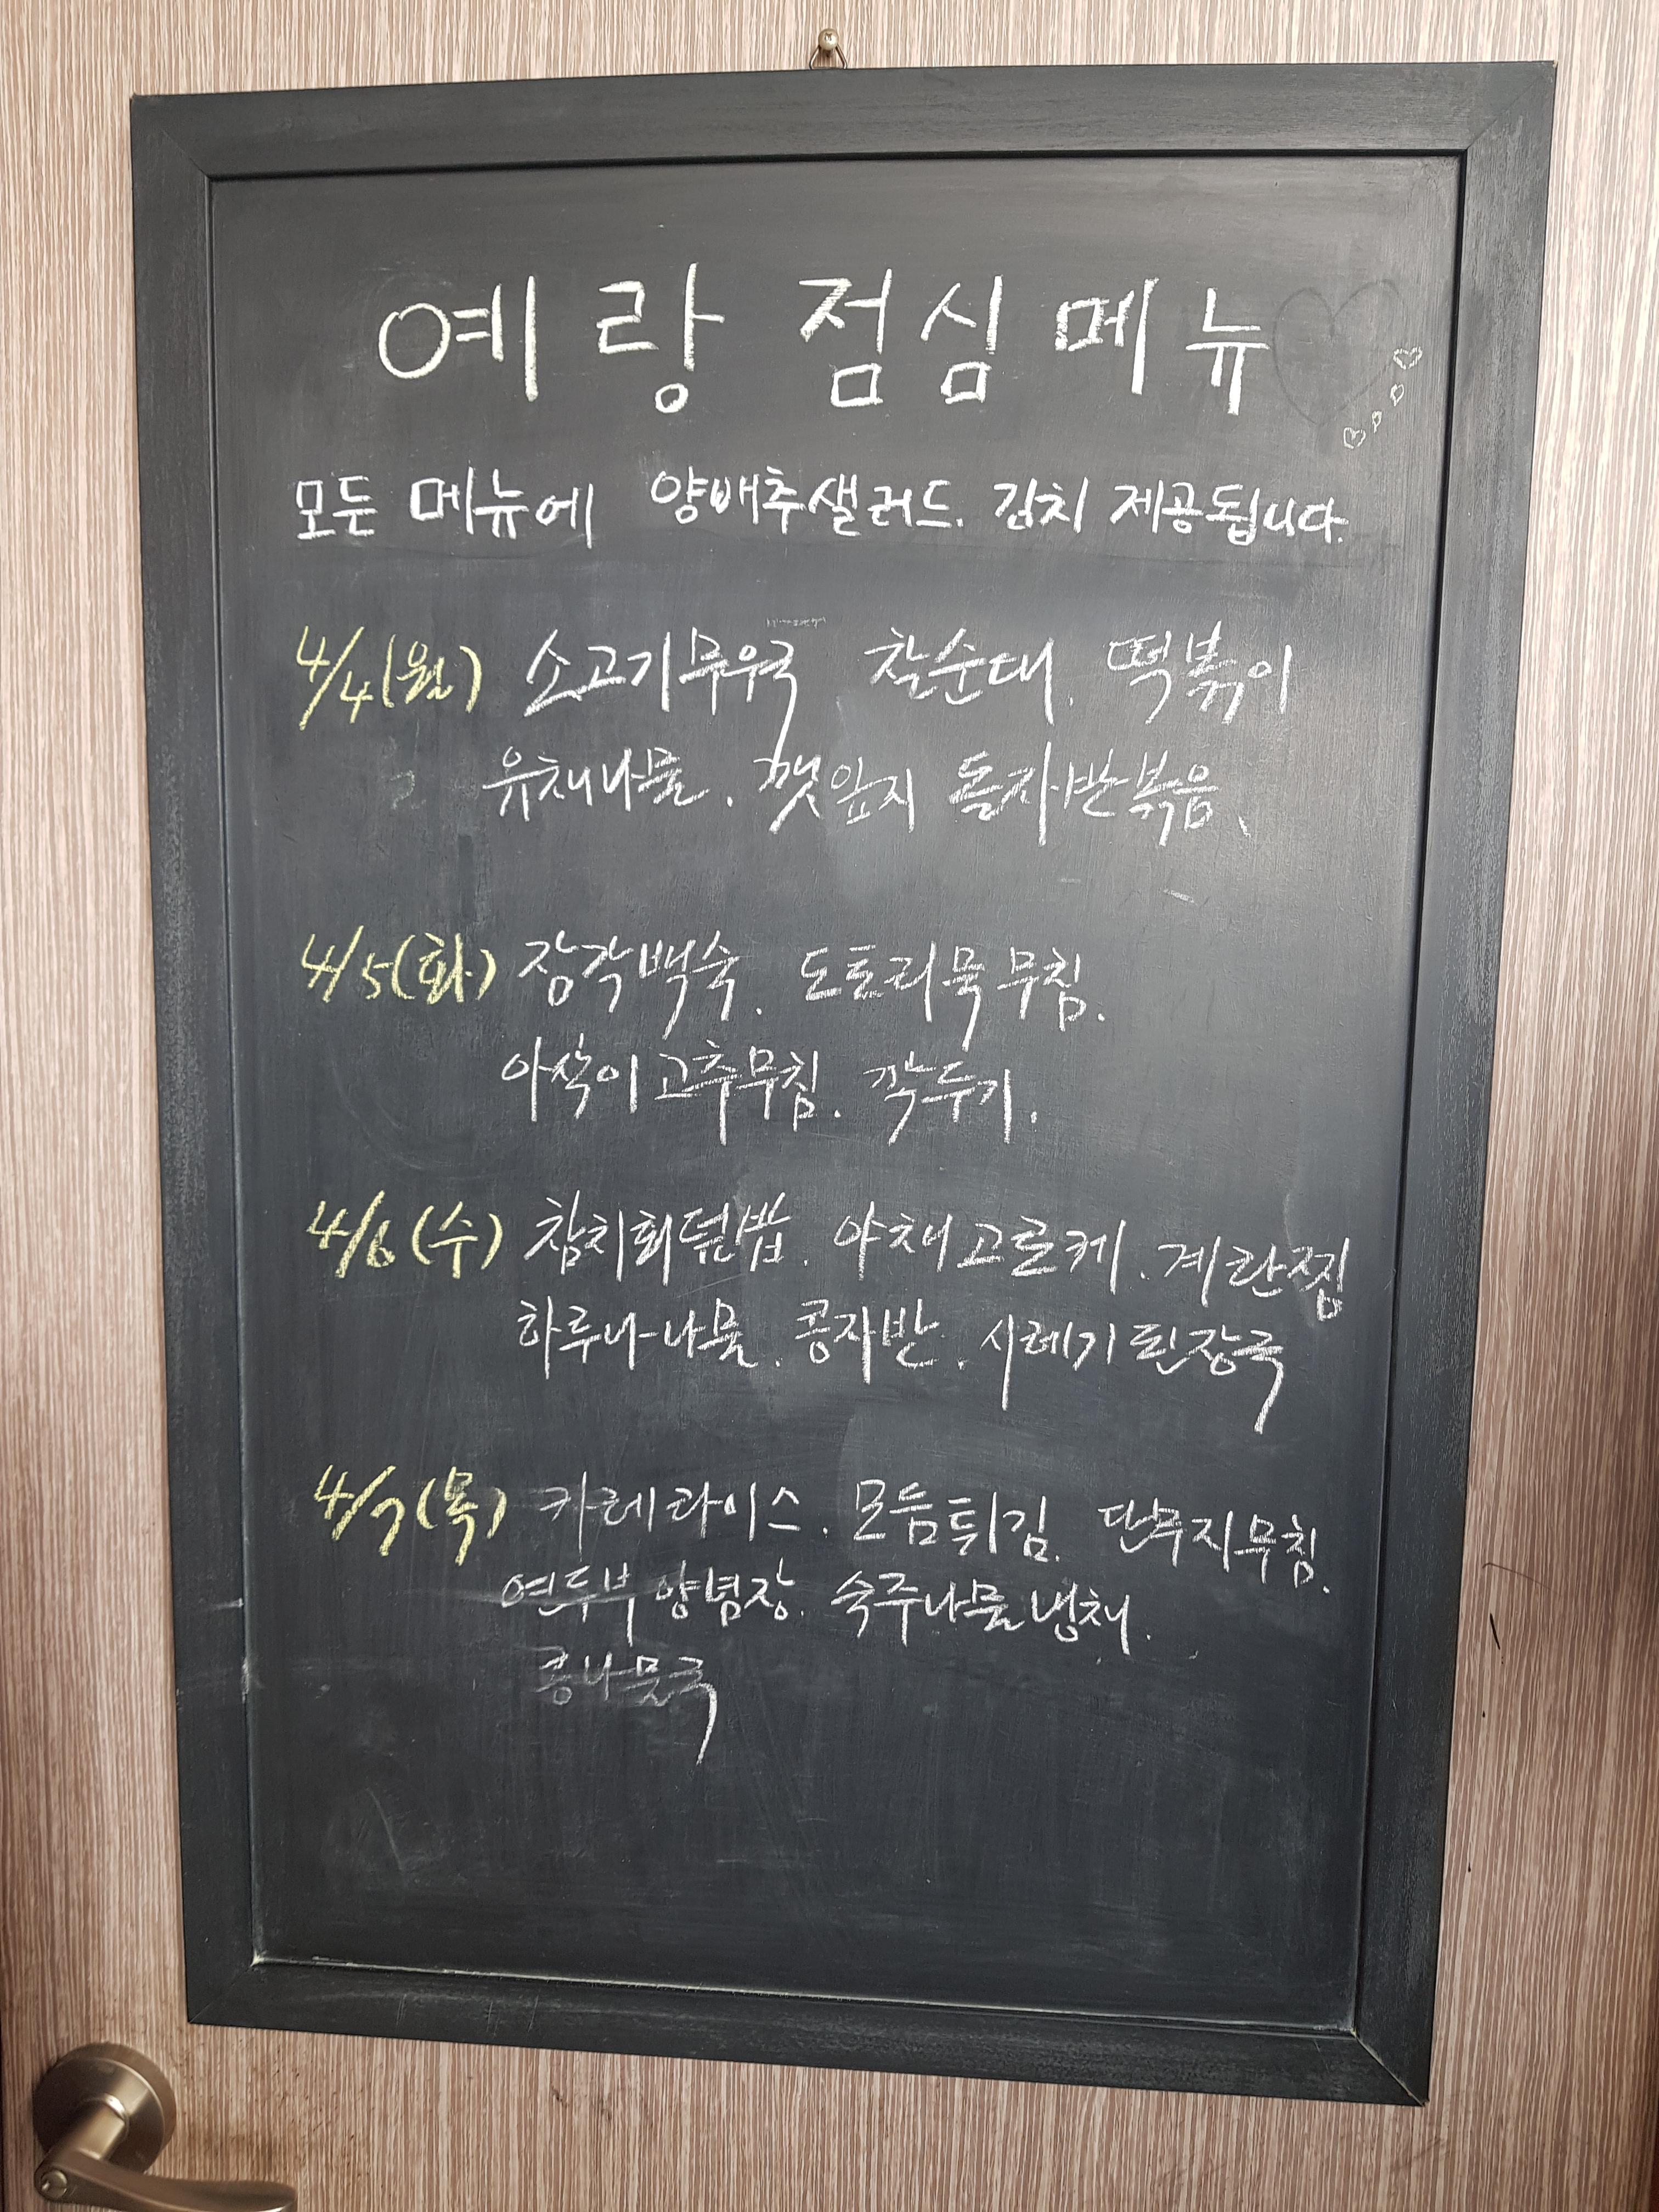 예랑 점심메뉴
모든 메뉴에 양배추샐러드. 김치 제공됩니다.
4/4(월) 소고기무우국 찰순대. 떡볶이
유채나물. 깻잎지 돌자반볶음.
4/5(화) 장각백숙. 도토리묵무침.
아삭이고추무침. 깍두기.
4/6(수) 참치회덮밥. 야채고로케. 계란찜
하루나나물. 콩자반. 시레기된장국
4/7(목) 카레라이스. 모듬튀김. 단무지무침.
연두부양념장. 숙주나물냉채.
콩나물국